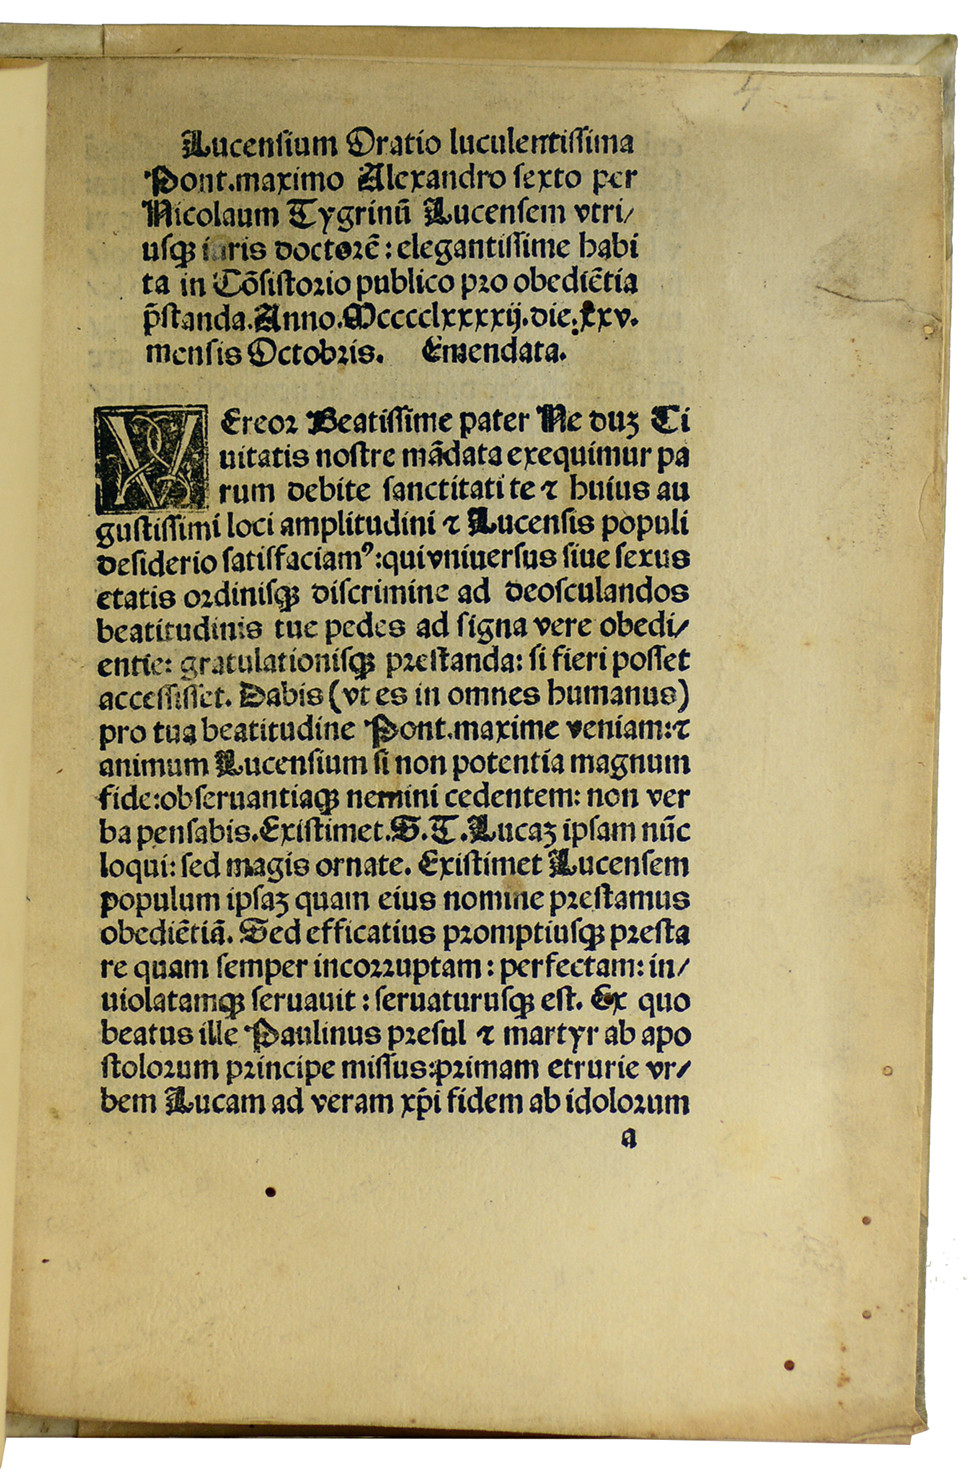 Lucensium Oratio luculentissima
Pont.maximo Alexandro sexto per
Nicolaum Tygrinū Lucensem vtri/
usqꝫ iuris doctorē: elegantissime habi
ta in Cōsistorio publico pro obediētia
p̄standa.Anno.Mcccclxxxxij.die.xxv.
mensis Octobris. Emendata.
VEreor Beatissime pater Ne duꝫ Ci
uitatis nostre mādata exequimur pa
rum debite sanctitati te ⁊ huius au
gustissimi loci amplitudini ⁊ Lucensis populi
desiderio satisfaciamꝰ:qui vniuersus siue sexus
etatis ordinisqꝫ discrimine ad deosculandos
beatitudinis tue pedes ad signa vere obedi/
entie: gratulationisqꝫ prestanda: si fieri posset
accessisset. Dabis (vt es in omnes humanus)
pro tua beatitudine Pont.maxime veniam:⁊
animum Lucensium si non potentia magnum
fide:obseruantiaqꝫ nemini cedentem: non ver
ba pensabis.Existimet.S.T.Lucaꝫ ipsam nūc
loqui: sed magis ornate. Existimet Lucensem
populum ipsaꝫ quam eius nomine prestamus
obediētiā. Sed efficatius promptiusqꝫ presta
re quam semper incorruptam: perfectam: in/
uiolatamqꝫ seruauit: seruaturusqꝫ est. Ex quo
beatus ille Paulinus presul ⁊ martyr ab apo
stolorum principe missus:primam etrurie vr/
bem Lucam ad veram xp̄i fidem ab idolorum
a